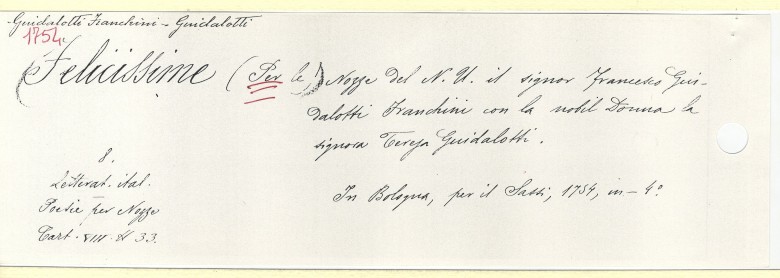 Guidalotti Franchini - Guidalotti
1754.
Felicissime (Per le) Nozze del N. U. il signor Francesco Gui-
dalotti Franchini con la nobil Donna la
signora Teresa Guidalotti.
8.
Letterat. ital.
Poesie per Nozze
Cart. VIII. N 33.
In Bologna, per il Sassi, 1754, in-4º